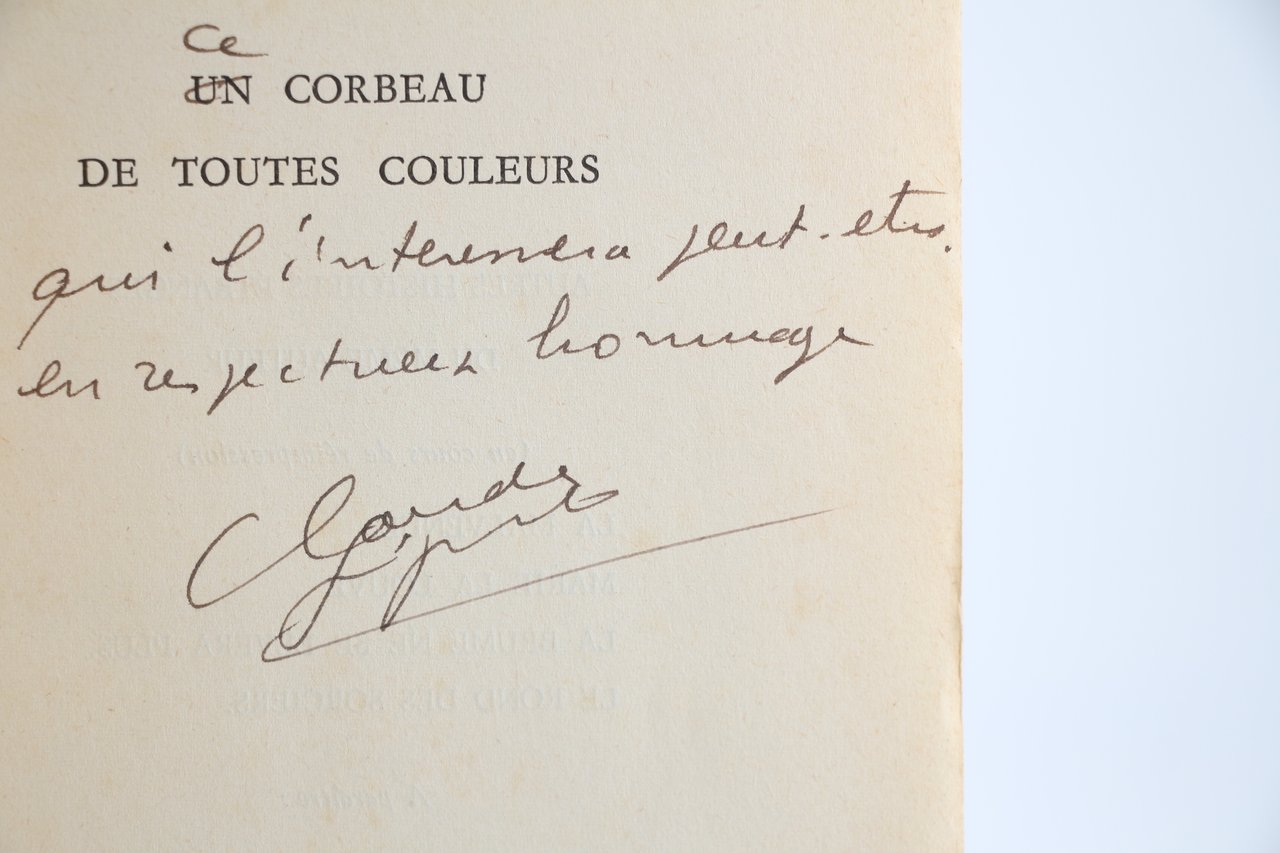 Ce
UN CORBEAU
DE TOUTES COULEURS
qui l'interessera peut-etre.
en respectueux hommage
Claude